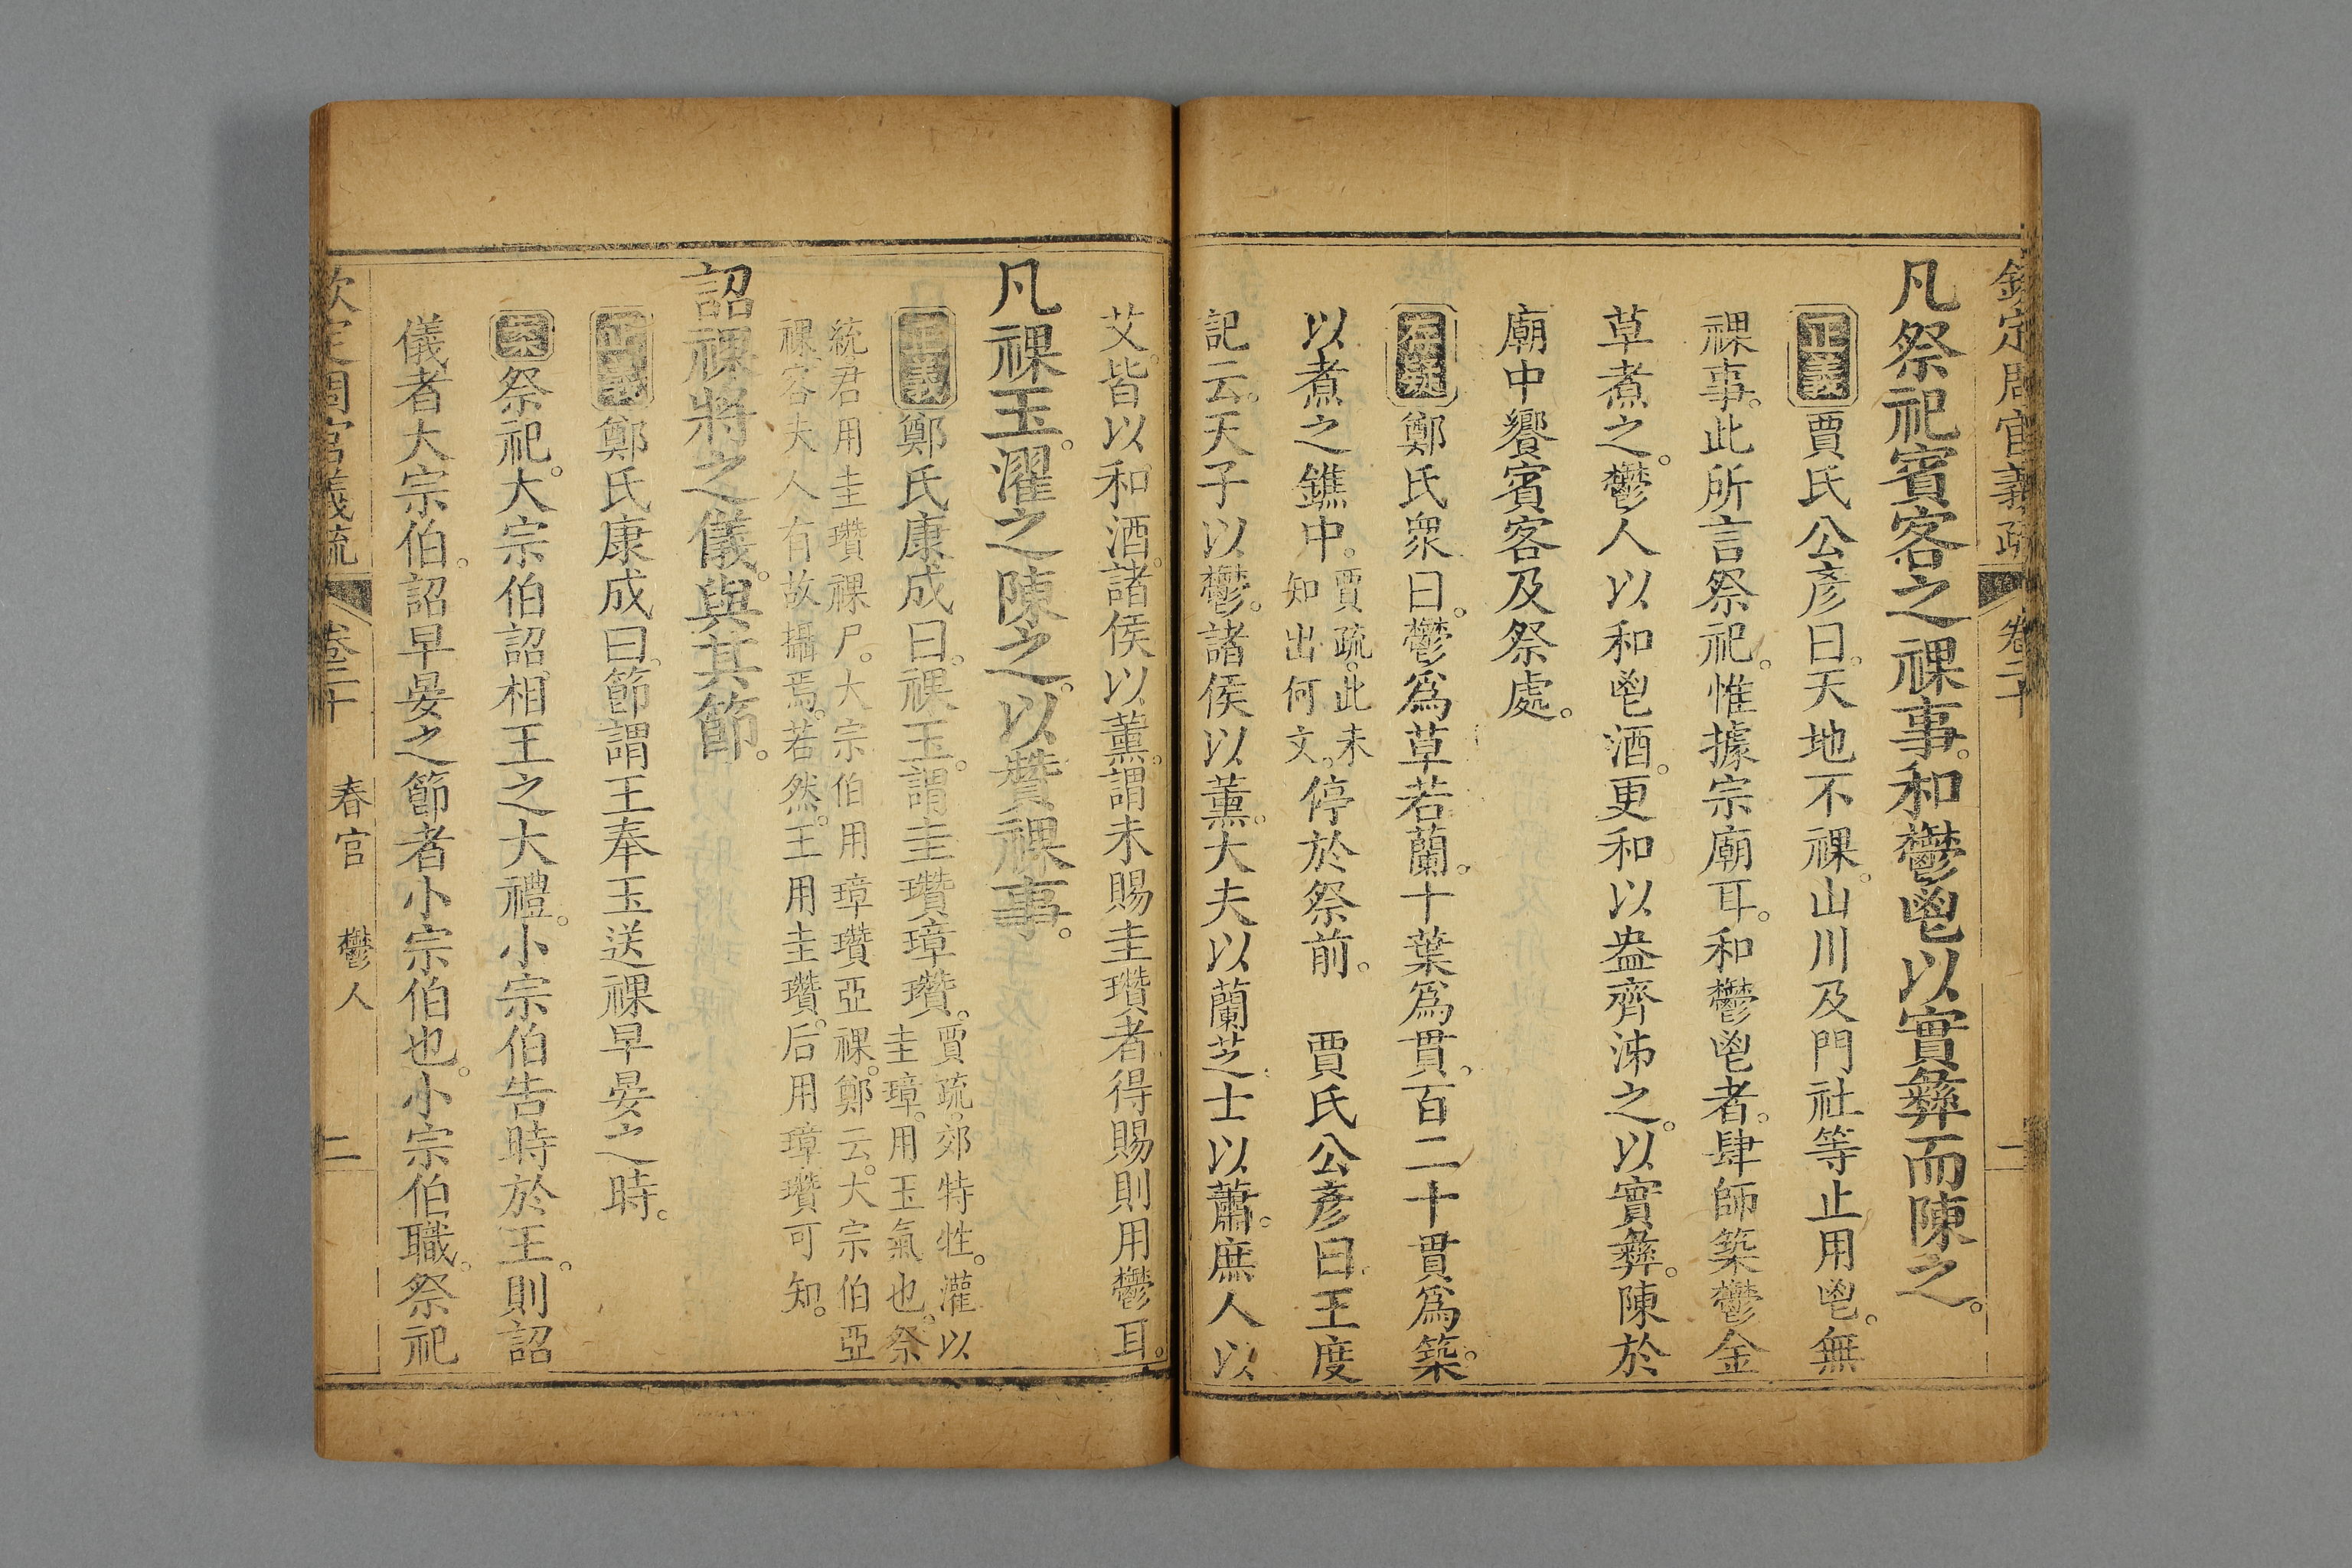 欽定周官義疏 卷二十 一
凡祭祀賓客之祼事。和鬱鬯以實彝而陳之。
正義 賈氏公彥曰。天地不祼。山川及門社等止用鬯。無
祼事。此所言祭祀。惟據宗廟耳。和鬱鬯者。肆師築鬱金
草煮之。鬱人以和鬯酒。更和以盎齊泲之。以實彝。陳於
廟中饗賓客及祭處。
存疑 鄭氏眾曰。鬱爲草若蘭。十葉爲貫。百二十貫爲築。
以煮之鐎中。賈疏。此未知出何文。停於祭前。 賈氏公彥曰。王度
記云。天子以鬱。諸侯以薰。大夫以蘭芝。士以蕭。庶人以
艾。皆以和酒。諸侯以薰。謂未賜圭瓚者。得賜則用鬱耳。
凡祼玉。濯之陳之。以贊祼事。
正義 鄭氏康成曰。祼玉。謂圭瓚璋瓚。賈疏。郊特牲。灌以圭璋。用玉氣也。祭
統君用圭瓚祼尸。大宗伯用璋瓚亞祼。鄭云。大宗伯亞
祼。容夫人有故攝焉。若然。王用圭瓚。后用璋瓚可知。
詔祼將之儀。與其節。
正義 鄭氏康成曰。節謂王奉玉送祼早晏之時。
案 祭祀。大宗伯詔相王之大禮。小宗伯告時於王。則詔
儀者大宗伯。詔早晏之節者小宗伯也。小宗伯職。祭祀
欽定周官義疏 卷二十 春官 鬱人 二